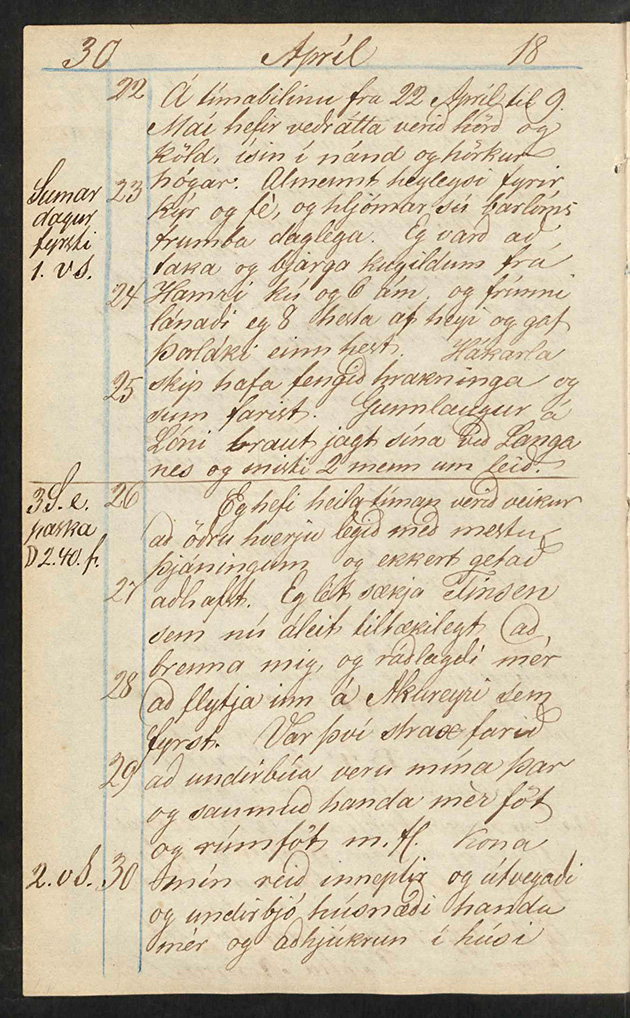 30 Apríl 18
22 Á tímabilinu fra 22 Apríl til 9
Maí hefir veðrátta verið hörð og
köld, ísin í nánd og hörkur
Sumar 23 högar. Almennt heyleysi fyrir
dagur kýr og fè, og hljómar sú barlóms
fyrsti trumba daglega. Eg varð að
1. vS. taka og bjarga kúgildum frá
24 Hamri kú og 6 ám, og frunni
lánaði eg 8 hesta af heyi og gaf
Þorláki einn hest. Hákarla
25 skip hafa fengið hrakninga og
sum farist. Gunnlaugur á
Lóni braut jagt sína við Langa
nes og misti 2 menn um leið.
3 S. e. 26 Eg hefi heila tíman verið veikur
paska að öðru hverju legið með mestu
D 2.40. f. þjáningum og ekkert getað
27 aðhafst. Eg lét sækja Finsen
sem nú áleit tiltækilegt að
brenna mig, og ráðlagði mér
28 að flytja inn á Akureyri sem
fyrst. Var því strax farið
29 að undirbúa veru mína þar
og saumuð handa mèr föt
og rúmföt m. fl. Kona
2. vS. 30 mín reið inneptir og útvegaði
og undirbjó húsnæði handa
mér og aðhjúkrun í húsi